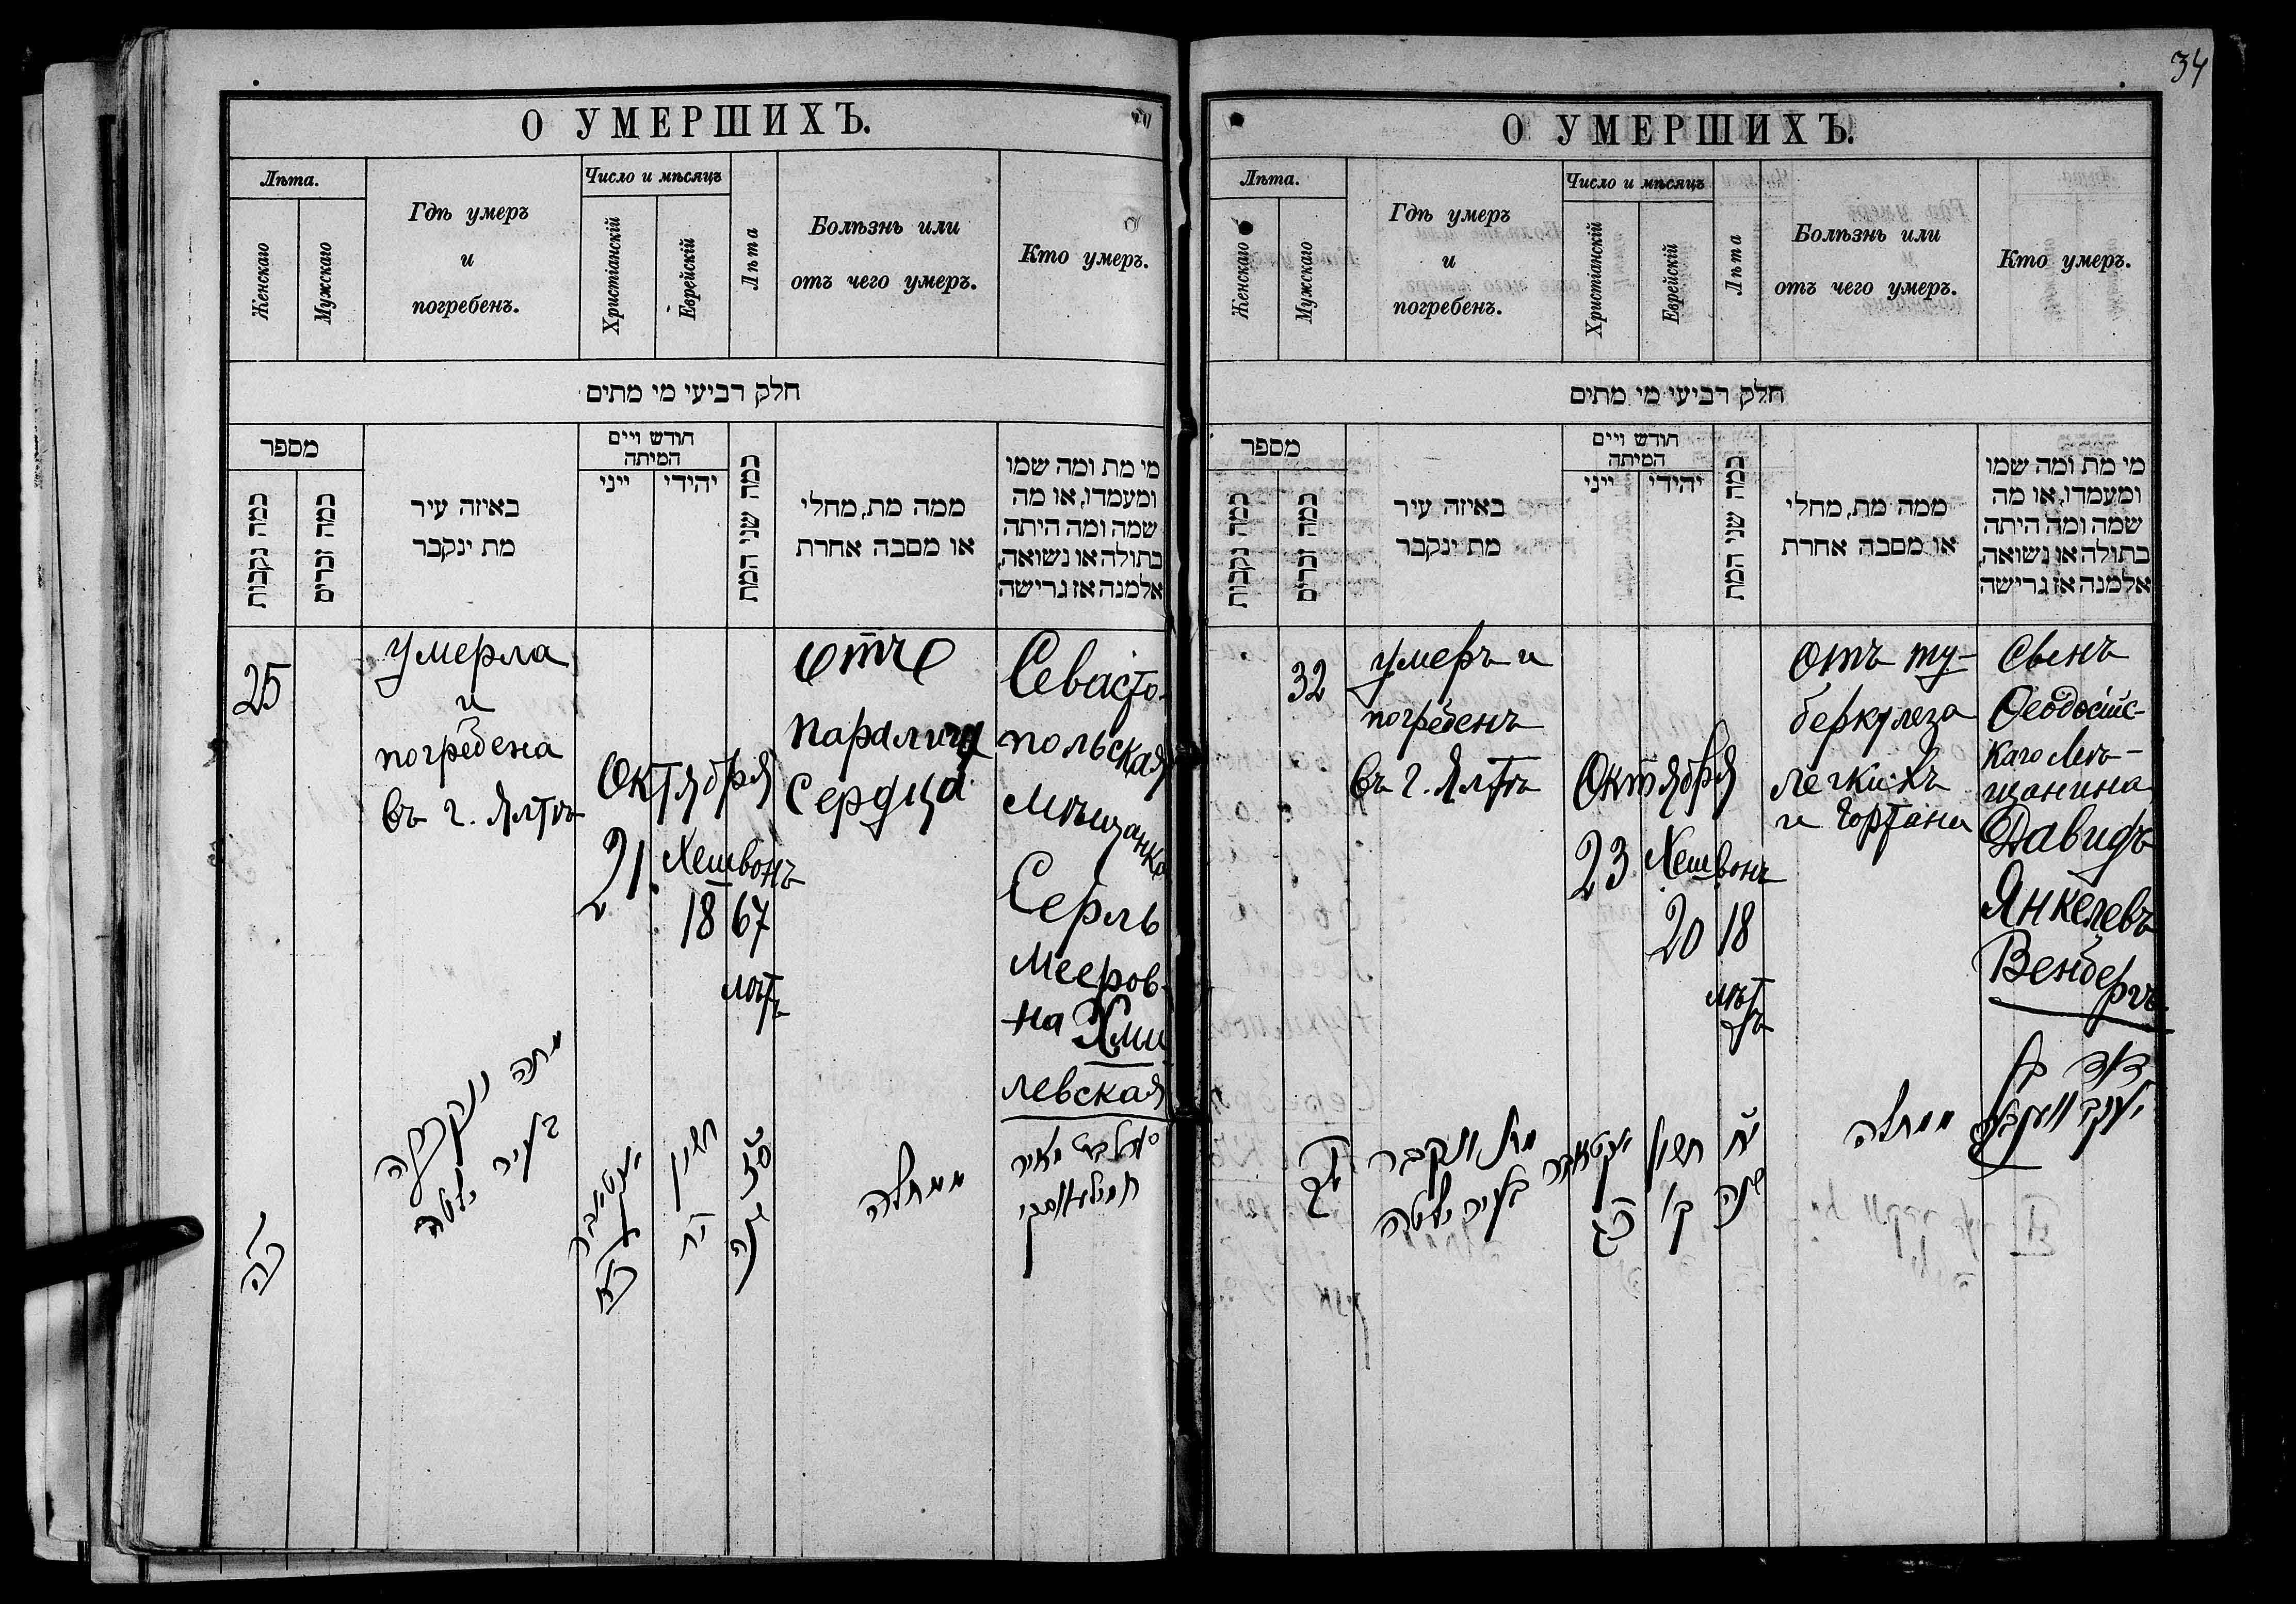 34
О УМЕРШИХЪ.
Лѣта.
Женскаго
Мужскаго
Гдѣ умеръ
и
погребенъ.
Число и мѣсяцъ
Христіанскій
Еврейскій
Лѣта
Болѣзнь или
отъ чего умеръ.
Кто умеръ.
חלק רביעי מי מתים
מספר
כמה נקבות
כמה זכרים
באיזה עיר
מת ינקבר
חודש ויים
המיתה
ייני
יהידי
כמה שני המת
ממה מת, מחלי
או מסבה אחרת
מי מת ומה שמו
ומעמדו, או מה
שמה ומה היתה
בתולה או נשואה,
אלמנה אז גרישה
25
умерла
и
погребена
въ г. Ялтѣ
Октября
21
Хешвонъ
18
67
лѣтъ
отъ
паралича
сердца
Севасто-
польская
мѣщанка
Серль
Мееров-
на Хми
левская
כה
מתה ונקברה
בעיר יאלטה
אקטאבר
כא
חשון
יח
סז
שנה
ממחלה
מאיר
О УМЕРШИХЪ.
Лѣта.
Женскаго
Мужскаго
Гдѣ умеръ
и
погребенъ.
Число и мѣсяцъ
Христіанскій
Еврейскій
Лѣта
Болѣзнь или
отъ чего умеръ.
Кто умеръ.
חלק רביעי מי מתים
מספר
כמה נקבות
כמה זכרים
באיזה עיר
מת ינקבר
חודש ויים
המיתה
ייני
יהידי
כמה שני המת
ממה מת, מחלי
או מסבה אחרת
מי מת ומה שמו
ומעמדו, או מה
שמה ומה היתה
בתולה או נשואה,
אלמנה אז גרישה
32
умеръ и
погребенъ
въ г. Ялтѣ
Октября
23
Хешвонъ
20
18
лѣт
ъ
отъ ту-
беркулеза
легкихъ
и гортани
Свенъ
Ѳеодосійс-
каго Мѣ-
щанина
Давидъ
Янкелевъ
Венбергъ
לב
מת ונקבר
בעיר יאלטה
אקטאבר
כג
חשון
כ
יח
שנה
ממחלה
דוד בן
יעקב